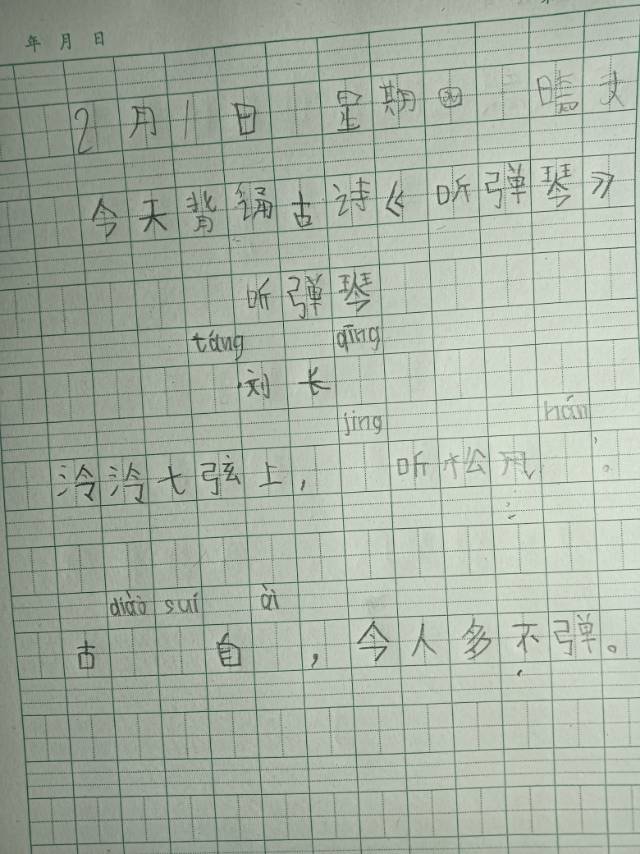 年 月 日
2月1日 星期四
今天背诵古诗《听弹琴》
听弹琴
táng qīng
刘长
jìng hán
泠泠七弦上，听松风。
diào suí ài
古自，今人多不弹。